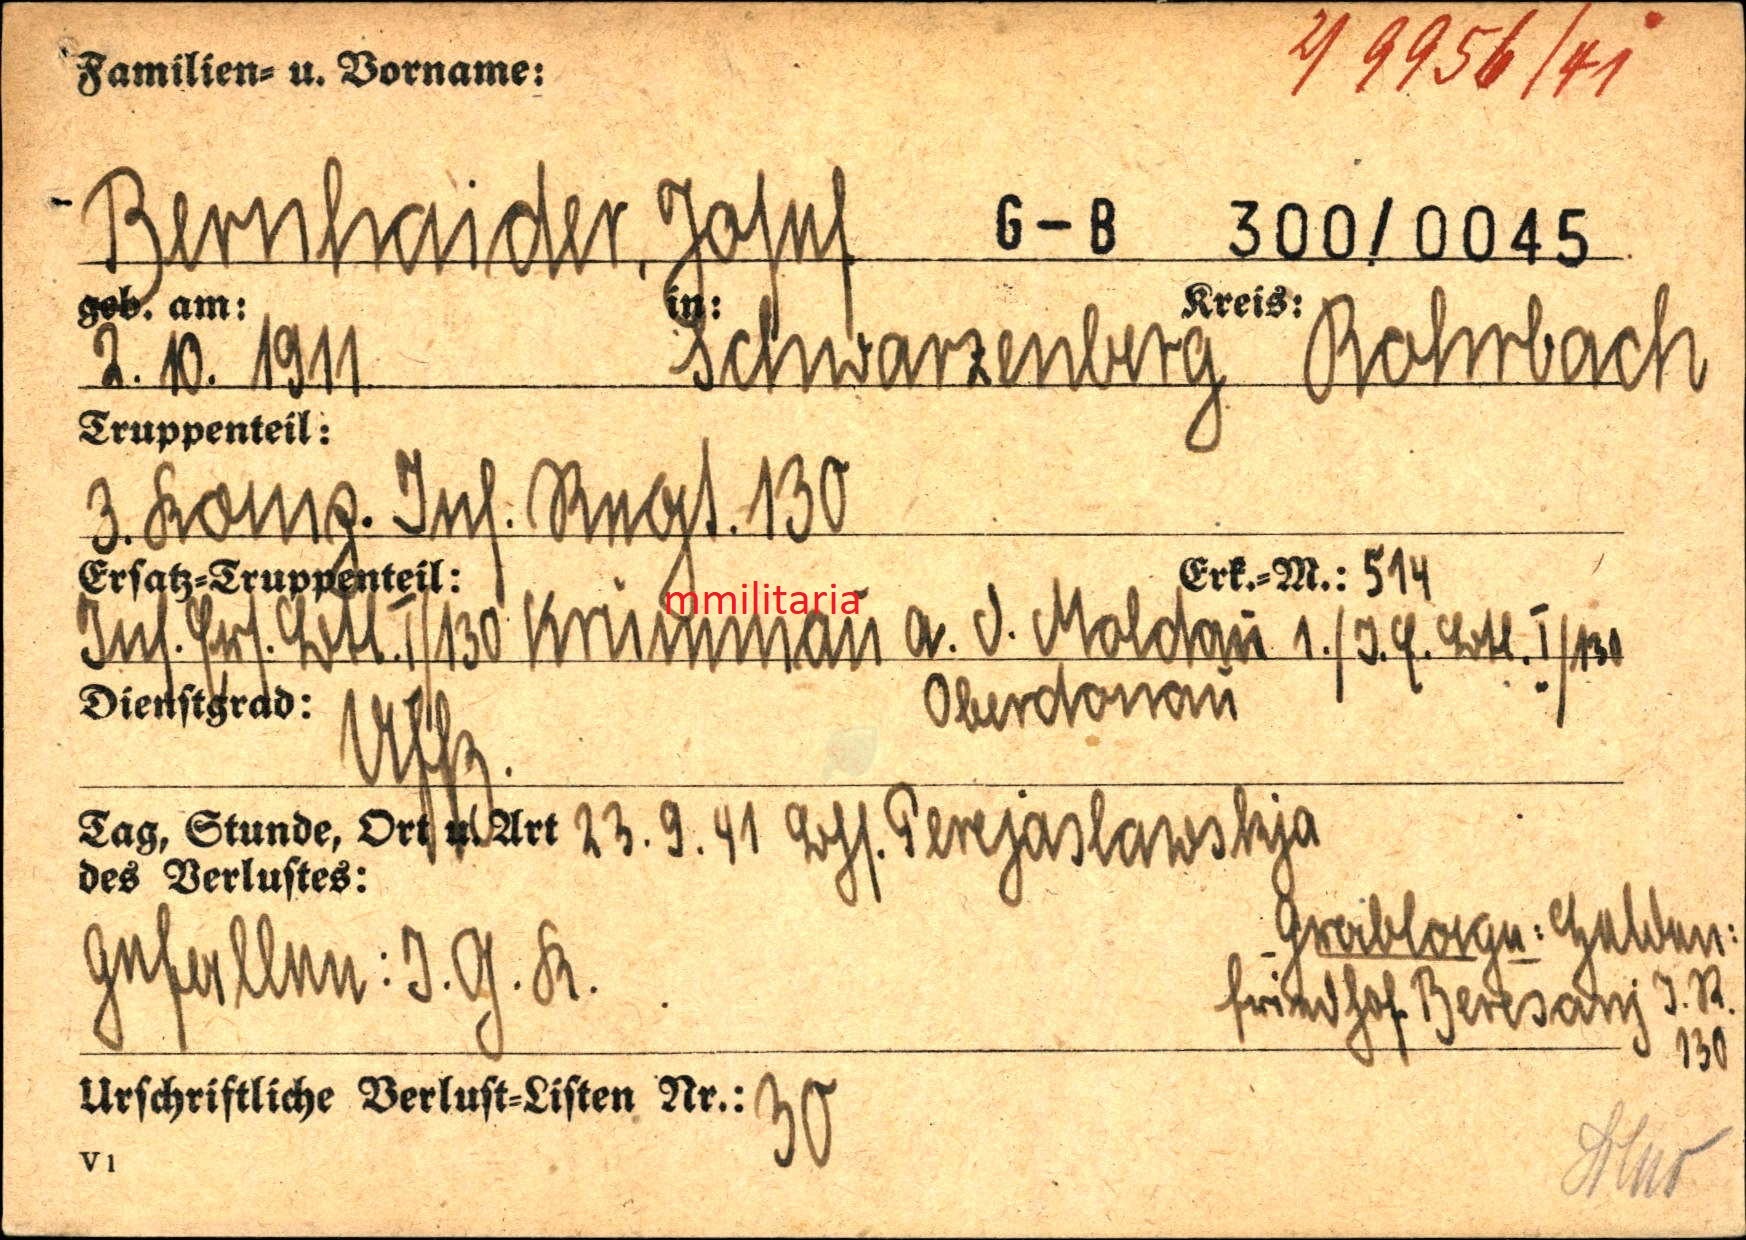 2/ 9956/41
Familien= u. Vorname:
Bernhaider, Josef G-B 300/0045
geb. am: in: Kreis:
2. 10. 1911 Schwarzenberg Rohrbach
Truppenteil:
3. Komp. Inf. Regt. 130
Ersatz=Truppenteil: Erk.=M.: 514
mmilitaria
Inf. Ers. Btl. I/130 Krummau a. d. Moldau 1./I.E. Btl. I/130
Dienstgrad: Uffz. Oberdonau
Tag, Stunde, Ort u. Art 23. 9. 41 Perejaslawskja
des Verlustes:
gefallen: I. G. K.
Grablage: Helden:
friedhof Beresanj I. R.
130
Urschriftliche Verlust=Listen Nr.: 30
V 1